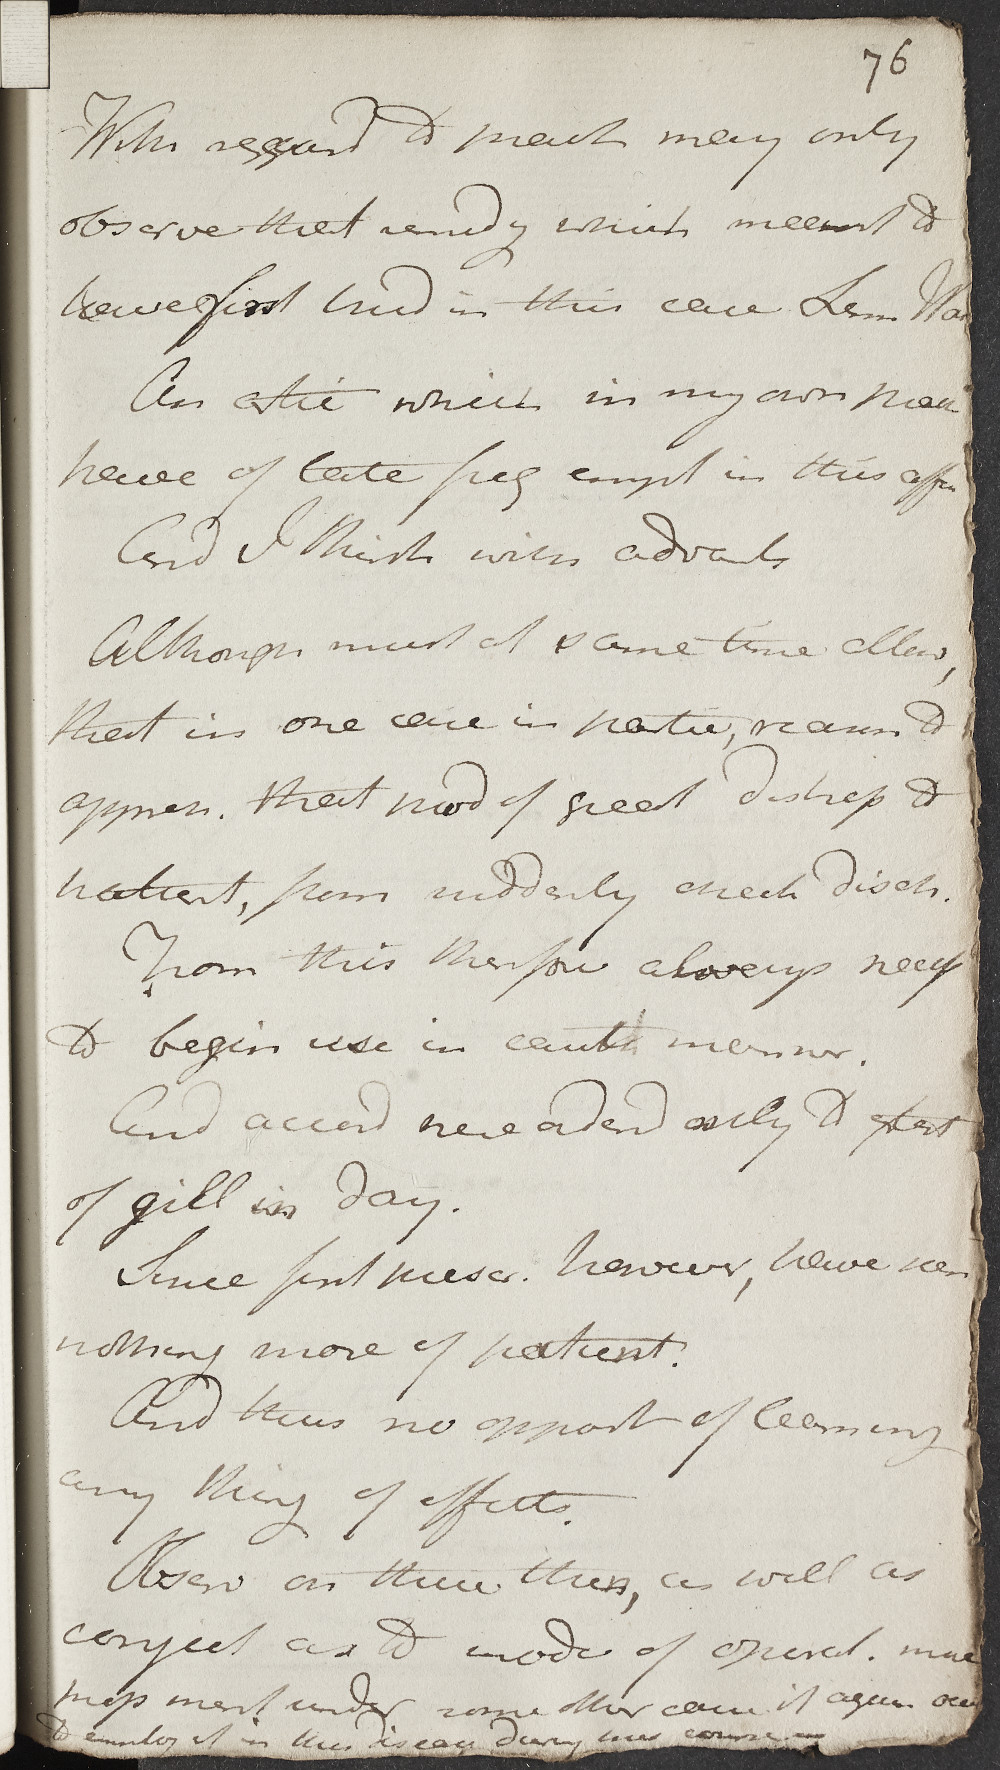 76
With regard to pract may only
observe that remedy which meant to
have first tried in this case Lem
An artic which in my own prac
have of late freq empl in this affec
And I think with advant
Although must at same time allow,
that in one case in partic, reason to
appreh. that prod of great distress to
patient, from suddenly check disch.
From this therefore always necess
to begin use in caut manner.
And accord here ordered only to extent
of gill in day.
Since first prescr. however, have seen
nothing more of patient.
And thus no opport of learning
any thing of effects.
Observ on these then, as well as
conject as to mode of operat. must
meet under some other case if again occ
to employ it in this disease during this course